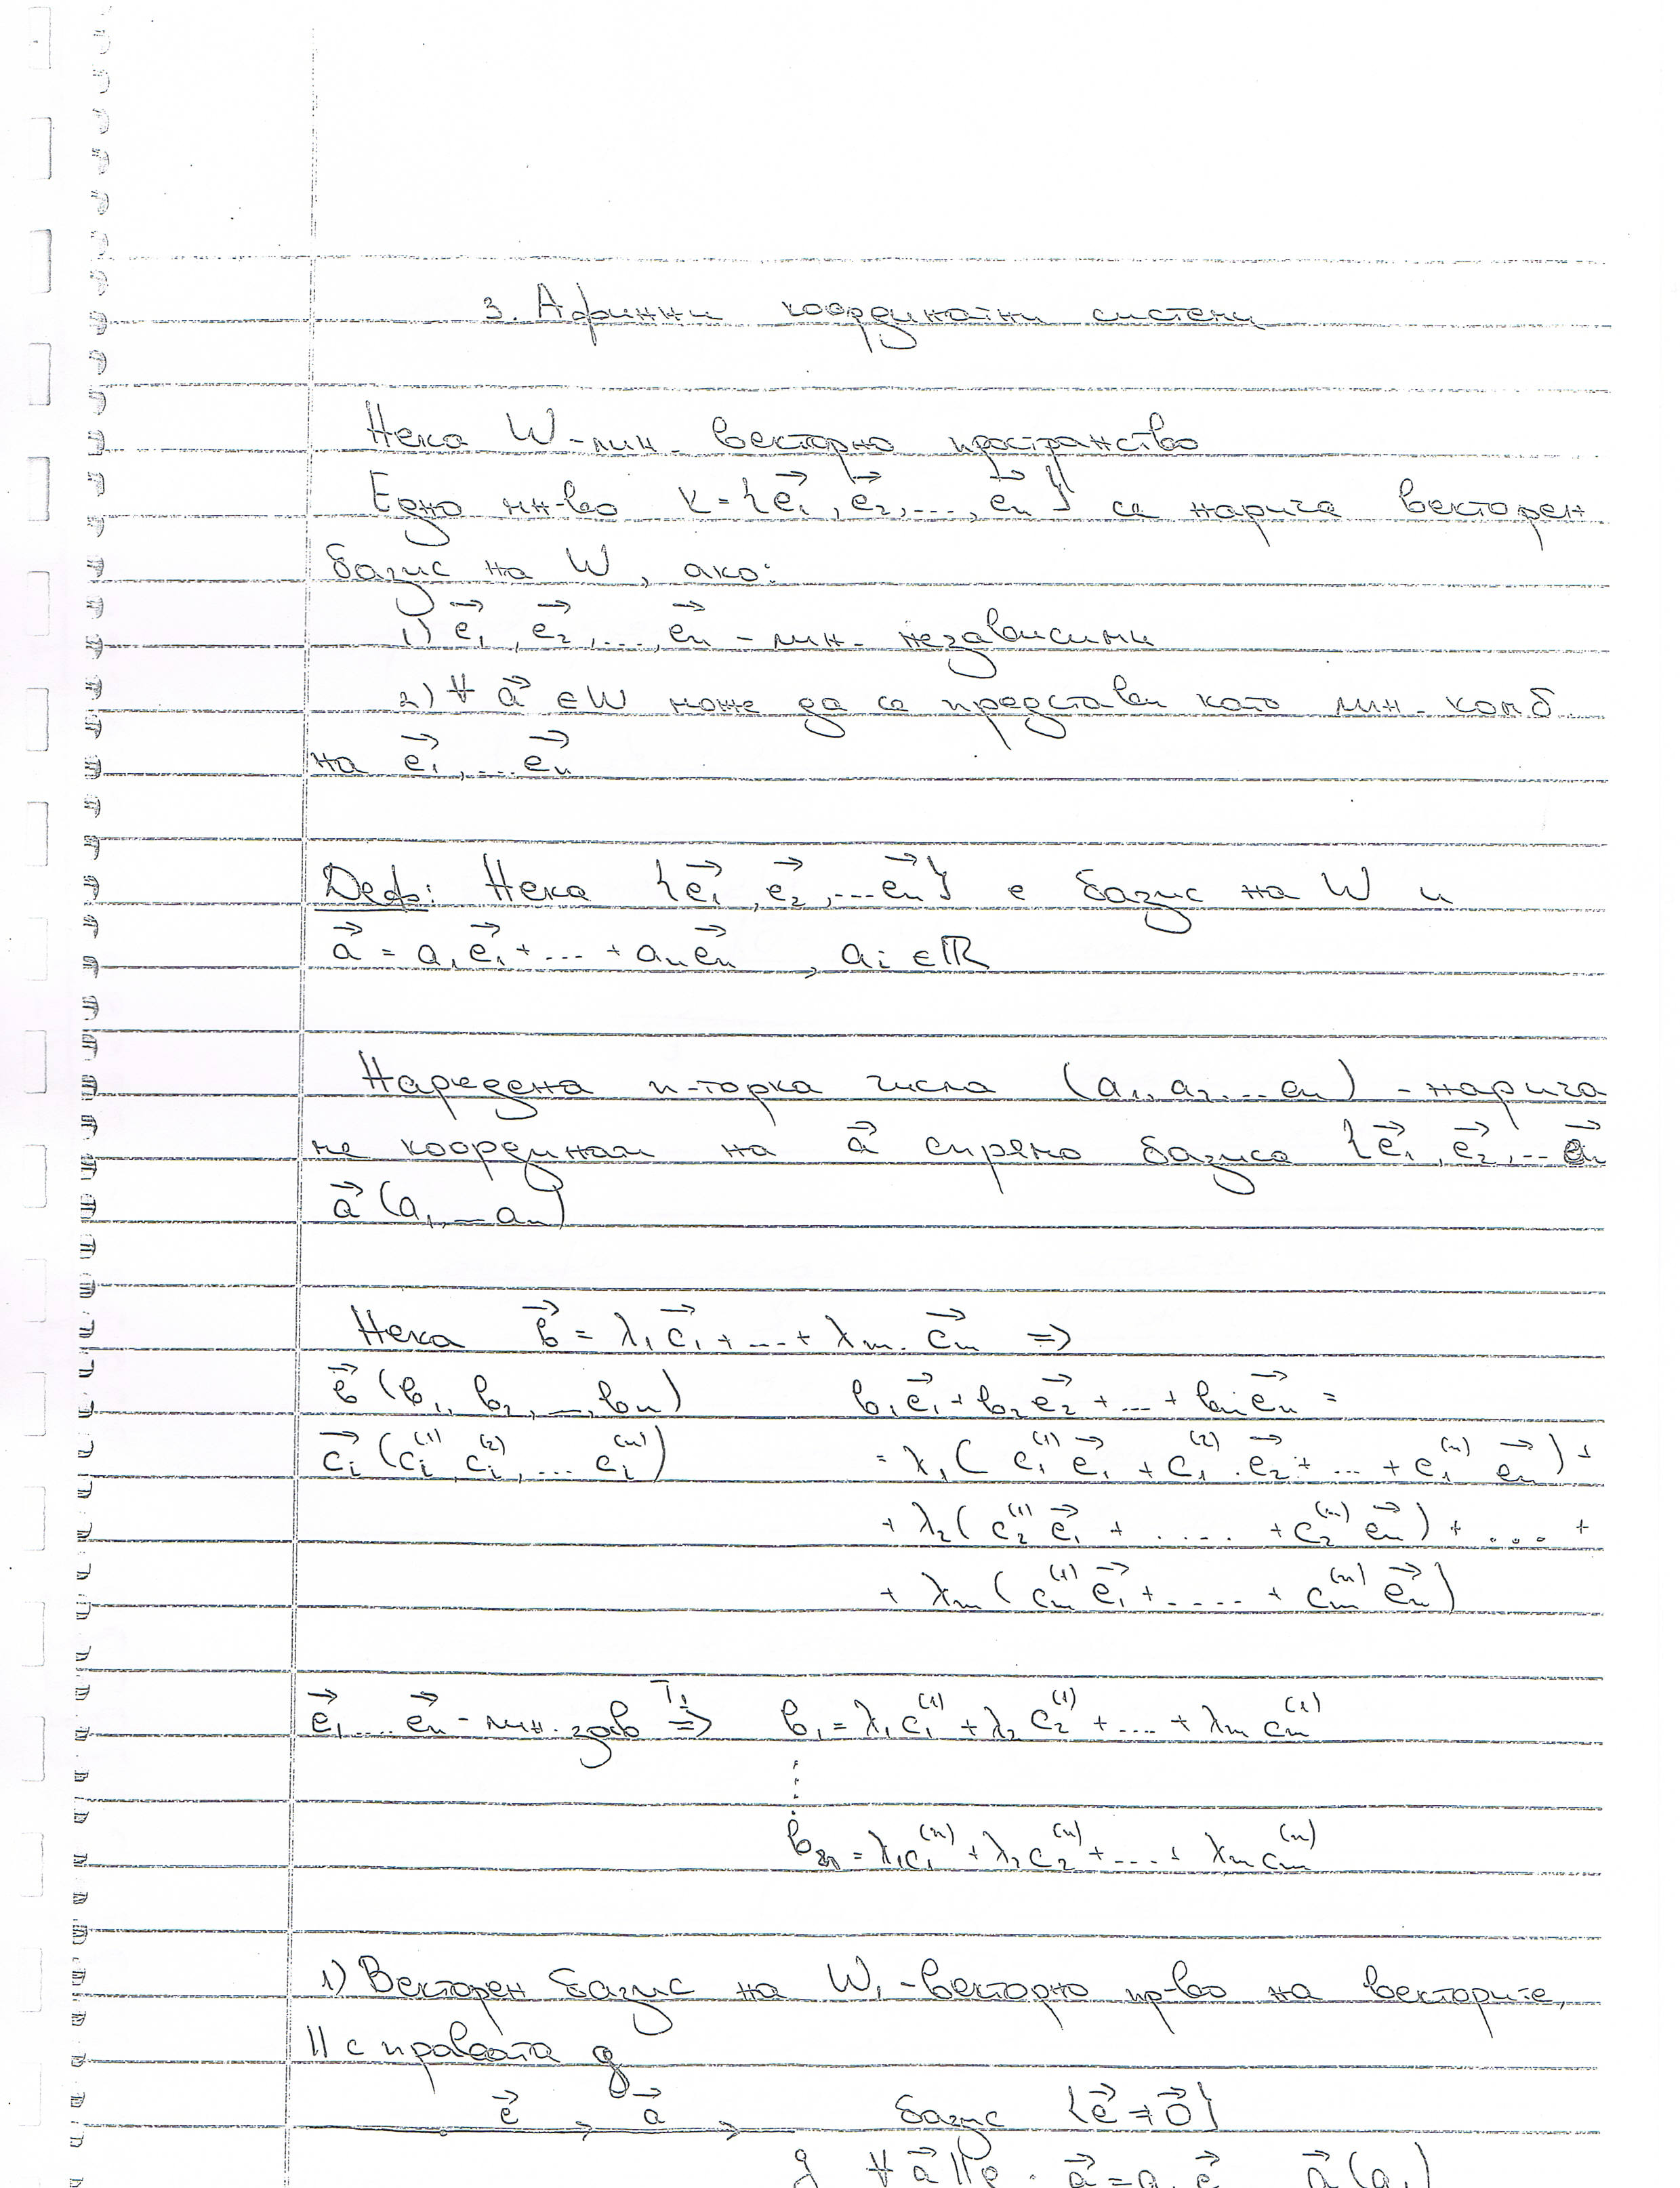 3. Афинни координатни системи
Нека W - лин. векторно пространство
Едно мн-во K = {e⃗₁, e⃗₂, ..., e⃗ₙ} се нарича векторен
базис на W, ако:
1) e⃗₁, e⃗₂, ..., e⃗ₙ - лин. независими
2) ∀ a⃗ ∈ W може да се представи като лин. комб.
на e⃗₁, ... e⃗ₙ
Деф: Нека {e⃗₁, e⃗₂, ... e⃗ₙ} е базис на W и
a⃗ = a₁e⃗₁ + ... + aₙe⃗ₙ , aᵢ ∈ ℝ
Наредена n-торка числа (a₁, a₂, ... eₙ) - нарича
ме координати на a⃗ спрямо базиса {e⃗₁, e⃗₂, ... e⃗ₙ
a⃗ (a₁, ... aₙ)
Нека b⃗ = λ₁c⃗₁ + ... + λₘ. c⃗ₘ =>
b⃗ (b₁, b₂, ..., bₙ) b₁e⃗₁ + b₂e⃗₂ + ... + bₙe⃗ₙ =
c⃗ᵢ (cᵢ⁽¹⁾, cᵢ⁽²⁾, ... cᵢ⁽ⁿ⁾) = λ₁( c₁⁽¹⁾ e⃗₁ + c₁⁽²⁾ . e⃗₂ + ... + c₁⁽ⁿ⁾ e⃗ₙ ) +
+ λ₂( c₂⁽¹⁾ e⃗₁ + ..... + c₂⁽ⁿ⁾ e⃗ₙ ) + .... +
+ λₘ ( cₘ⁽¹⁾ e⃗₁ + ..... + cₘ⁽ⁿ⁾ e⃗ₙ )
e⃗₁ .... e⃗ₙ - лин. зав T₁ => b₁ = λ₁c₁⁽¹⁾ + λ₂c₂⁽¹⁾ + .... + λₘcₘ⁽¹⁾
⋮
bₙ = λ₁c₁⁽ⁿ⁾ + λ₂c₂⁽ⁿ⁾ + .... + λₘcₘ⁽ⁿ⁾
1) Векторен базис на W₁ - векторно пр-во на векторите,
|| с правата g
e⃗ a⃗ базис {e⃗ ≠ 0⃗}
g ∀ a⃗ || e : a⃗ = a₁ e⃗ a⃗ (a₁)